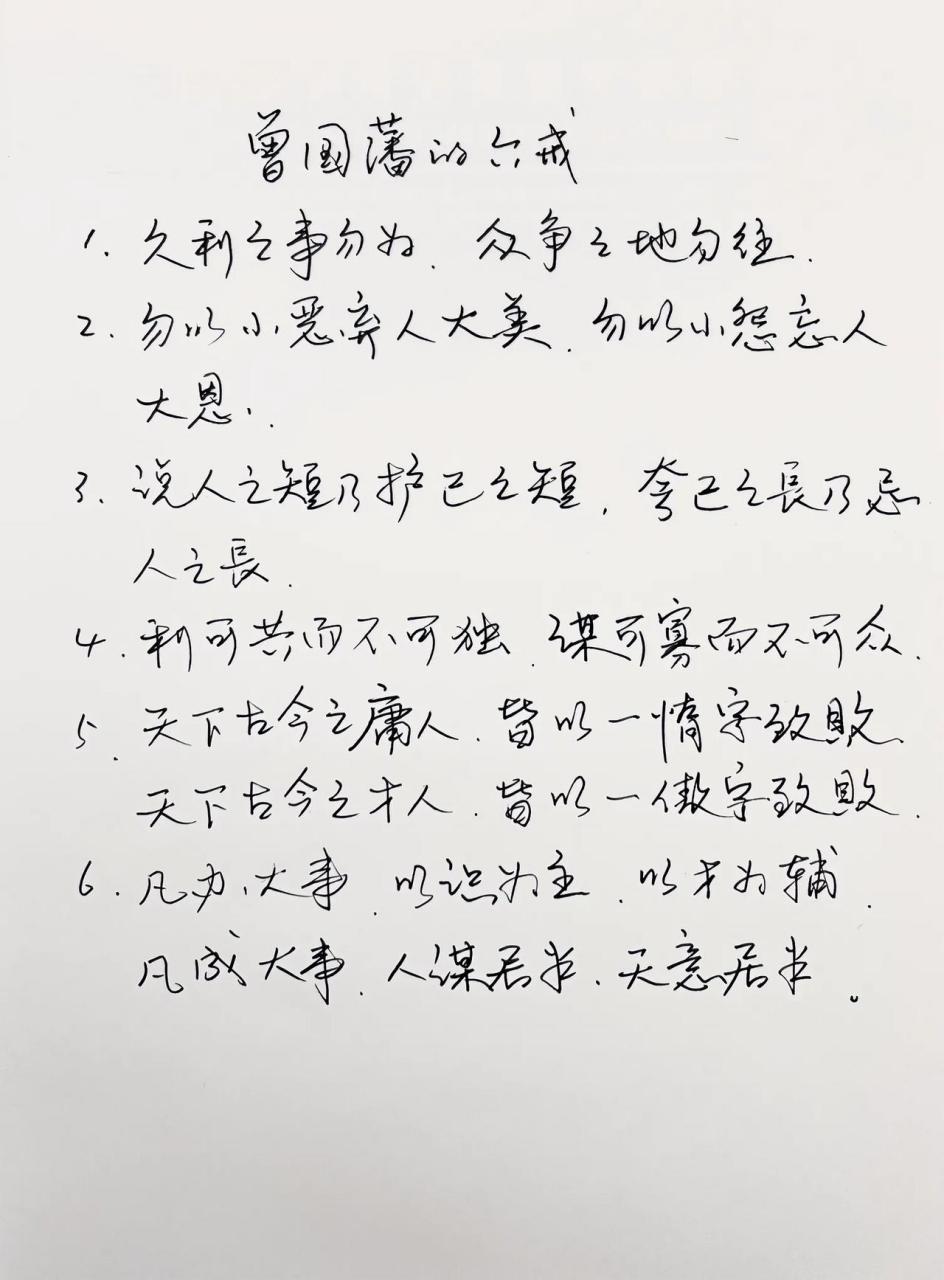 曾国藩的六戒
1. 久利之事勿为. 众争之地勿往.
2. 勿以小恶弃人大美. 勿以小怨忘人
大恩.
3. 说人之短乃护己之短. 夸己之長乃忌
人之長.
4. 利可共而不可独. 谋可寡而不可众.
5. 天下古今之庸人. 皆以一惰字致敗.
天下古今之才人. 皆以一傲字致敗.
6. 凡办大事. 以识为主. 以才为辅.
凡成大事. 人谋居半. 天意居半。